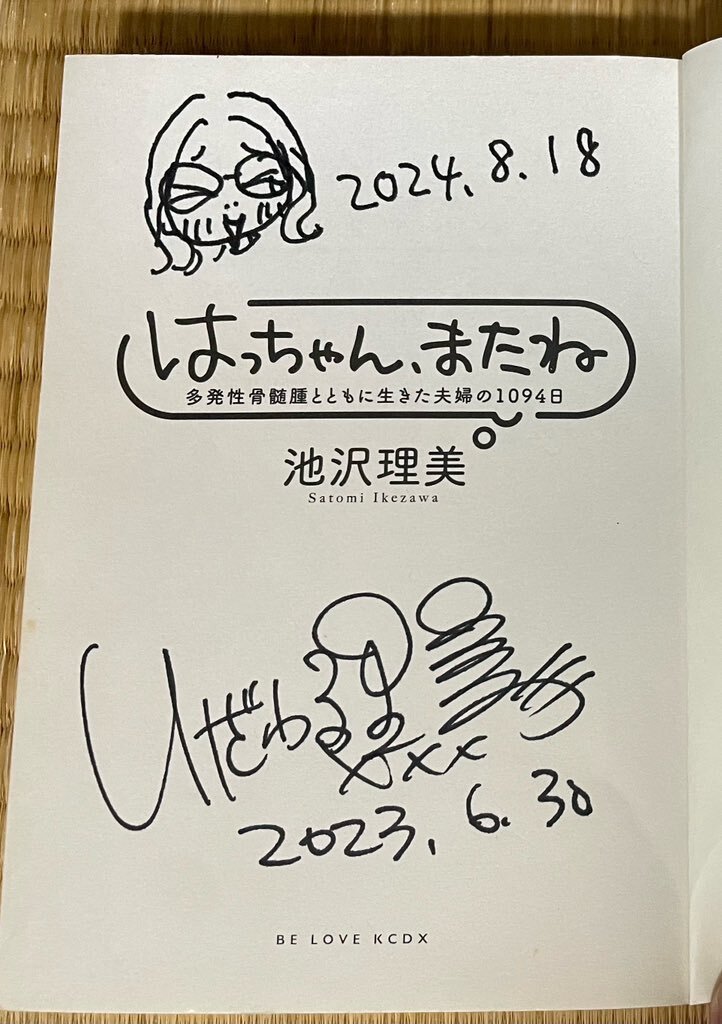 2024.8.18
はっちゃん、またね
多発性骨髄腫とともに生きた夫婦の1094日
池沢理美
Satomi Ikezawa
2023.6.30
BE LOVE KCDX